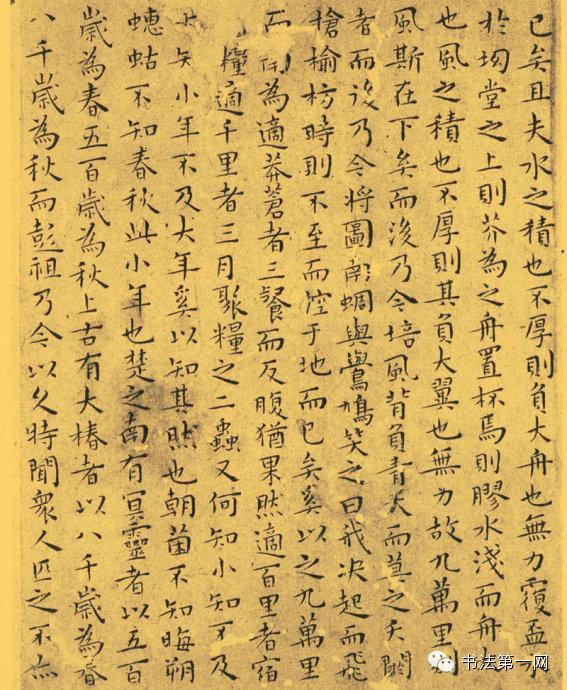 已矣且夫水之積也不厚則負大舟也無力覆盃水
於坳堂之上則芥為之舟置杯焉則膠水淺而舟
也風之積也不厚則其負大翼也無力故九萬里則
風斯在下矣而後乃今培風背負青天而莫之夭閼
者而後乃今將圖南蜩與鷽鳩笑之曰我決起而飛
槍榆枋時則不至而控于地而已矣奚以之九萬里
而南為適莽蒼者三飡而反腹猶果然適百里者宿
糧適千里者三月聚糧之二蟲又何知小知不及
大知小年不及大年奚以知其然也朝菌不知晦朔
蟪蛄不知春秋此小年也楚之南有冥靈者以五百
歲為春五百歲為秋上古有大椿者以八千歲為春
八千歲為秋而彭祖乃今以久特聞衆人匹之不亦
书法第一网